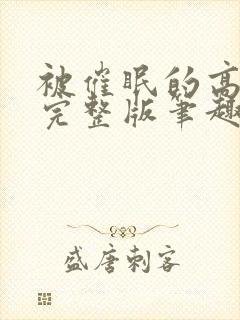 被催眠的高
完整版笔趣
盛唐刺客